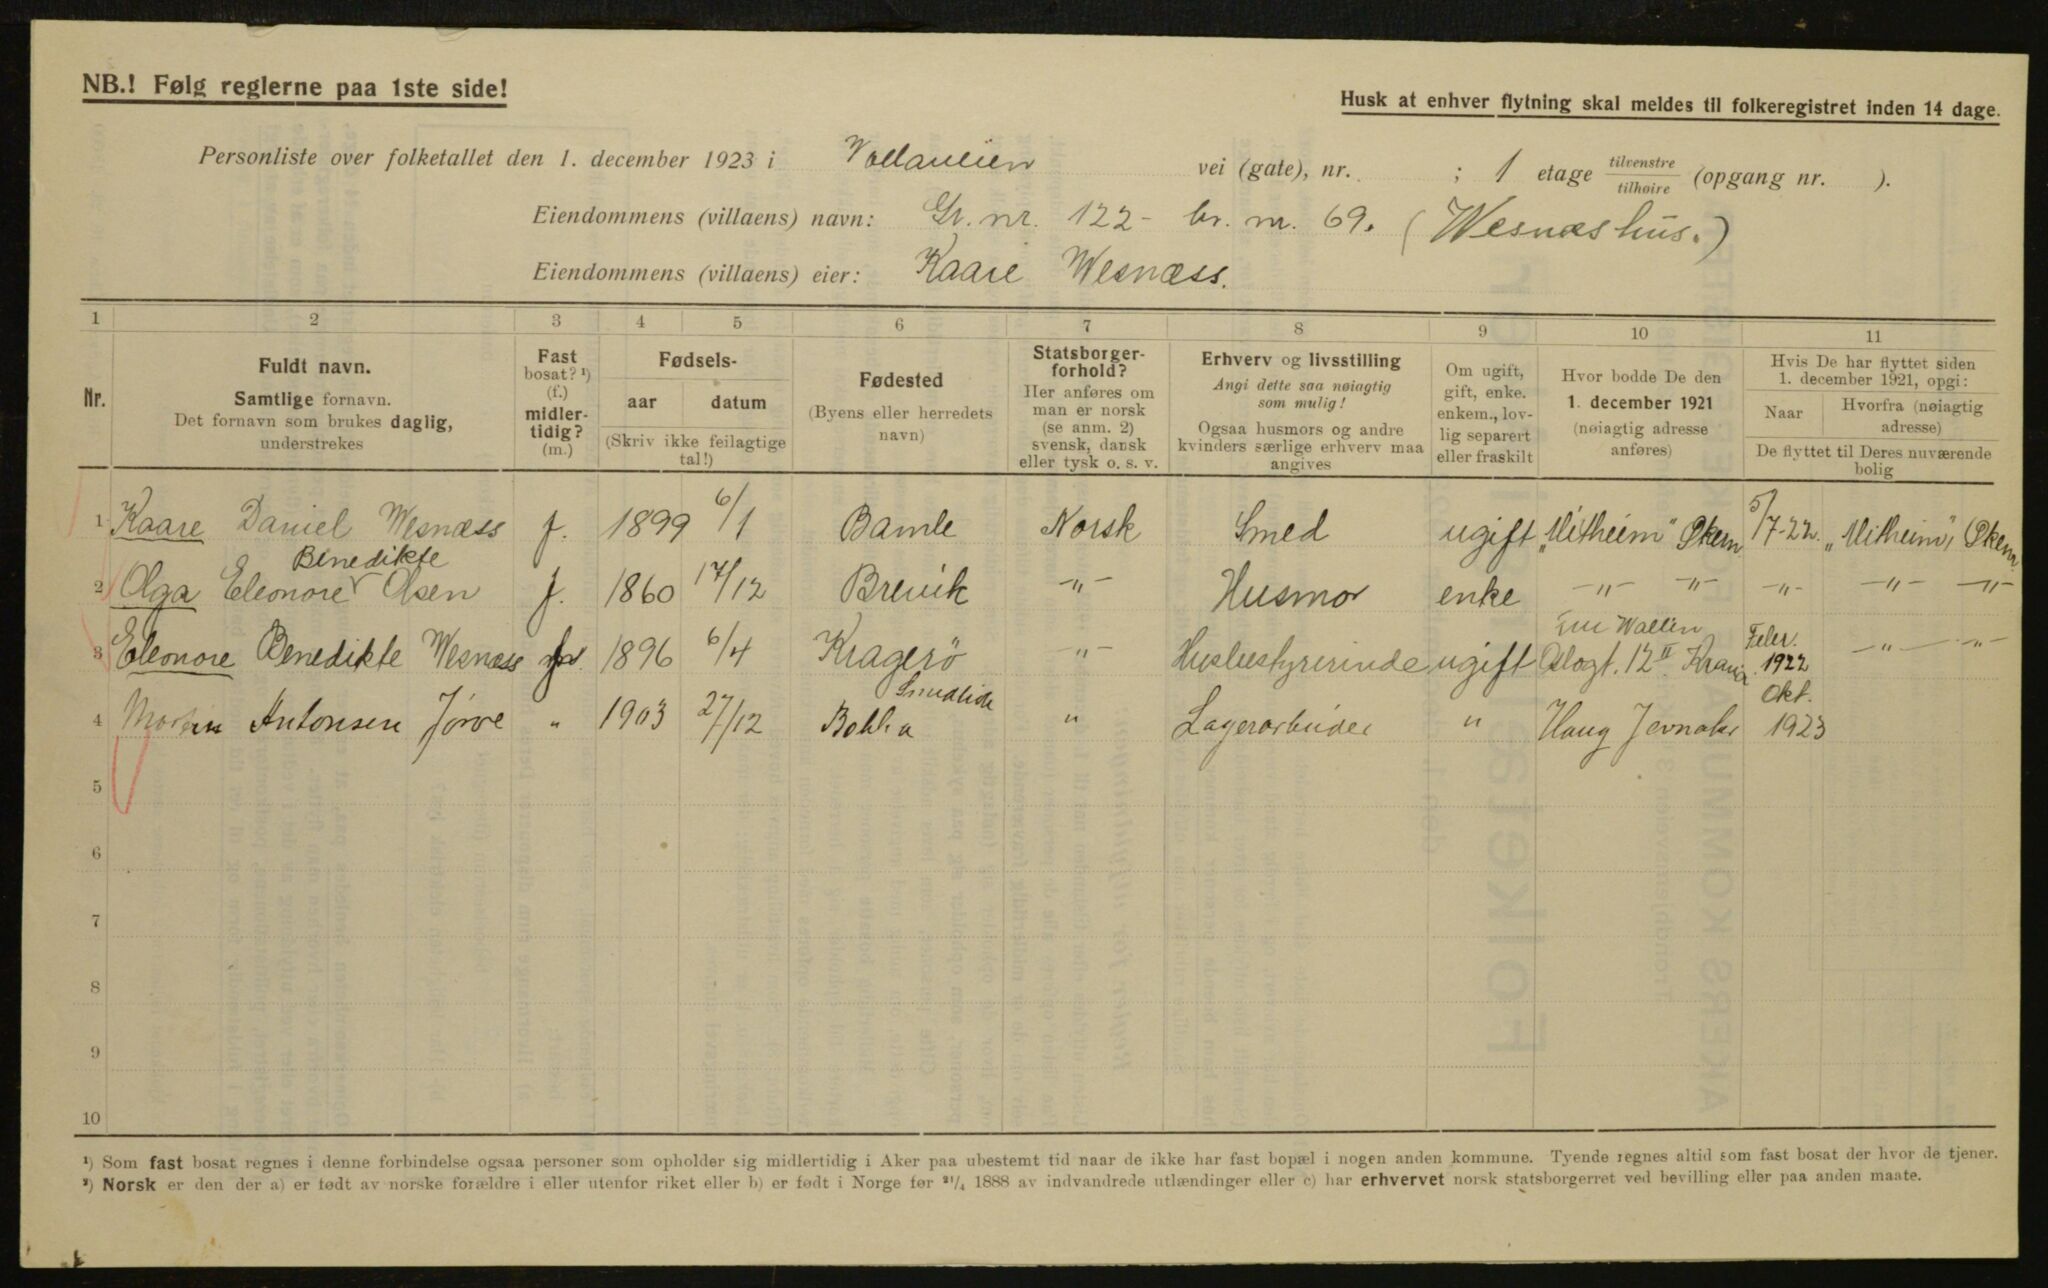 NB.! Følg reglerne paa 1ste side!
Husk at enhver flytning skal meldes til folkeregistret inden 14 dage.
Personliste over folketallet den 1. december 1923 i vei (gate), nr. ; 1 etage tilvenstre/tilhøire (opgang nr. ).
Eiendommens (villaens) navn: Gr. nr. 122 - br. nr. 69. (Wesnæshus.)
Eiendommens (villaens) eier: Kaare Wesnæss.
1 2 3 4 5 6 7 8 9 10 11
Nr.
Fuldt navn.
Samtlige fornavn.
Det fornavn som brukes daglig,
understrekes
Fast
bosat? ¹)
(f.)
midler-
tidig?
(m.)
Fødsels-
aar datum
(Skriv ikke feilagtige
tal!)
Fødested
(Byens eller herredets
navn)
Statsborger-
forhold?
Her anføres om
man er norsk
(se anm. 2)
svensk, dansk
eller tysk o. s. v.
Erhverv og livsstilling
Angi dette saa nøiagtig
som mulig!
Ogsaa husmors og andre
kvinders særlige erhverv maa
angives
Om ugift,
gift, enke.
enkem., lov-
lig separert
eller fraskilt
Hvor bodde De den
1. december 1921
(nøiagtig adresse
anføres)
Hvis De har flyttet siden
1. december 1921, opgi:
Naar Hvorfra (nøiagtig
adresse)
De flyttet til Deres nuværende
bolig
1 Kaare Daniel Wesnæss f. 1899 6/1 Bamle Norsk Smed ugift „Mitheim" Økern 5/7-22. „Mitheim", Økern
Benedikte
2 Olga Eleonore Olsen f. 1860 17/12 Brevik -„- Husmor enke -„- -„- -„- -„- -„-
3 Eleonore Benedikte Wesnæss 1896 6/4 Kragerø -„- Husbestyrerinde ugift 12 II Febr. 1922 -„- -„-
4 Martin Antonsen 1903 27/12 „ Lagerarbeider „ Haug Jevnaker Okt. 1923
5
6
7
8
9
10
¹) Som fast bosat regnes i denne forbindelse ogsaa personer som opholder sig midlertidig i Aker paa ubestemt tid naar de ikke har fast bopæl i nogen anden kommune. Tyende regnes altid som fast bosat der hvor de tjener.
²) Norsk er den der a) er født av norske forældre i eller utenfor riket eller b) er født i Norge før ²¹/₄ 1888 av indvandrede utlændinger eller c) har erhvervet norsk statsborgerret ved bevilling eller paa anden maate.